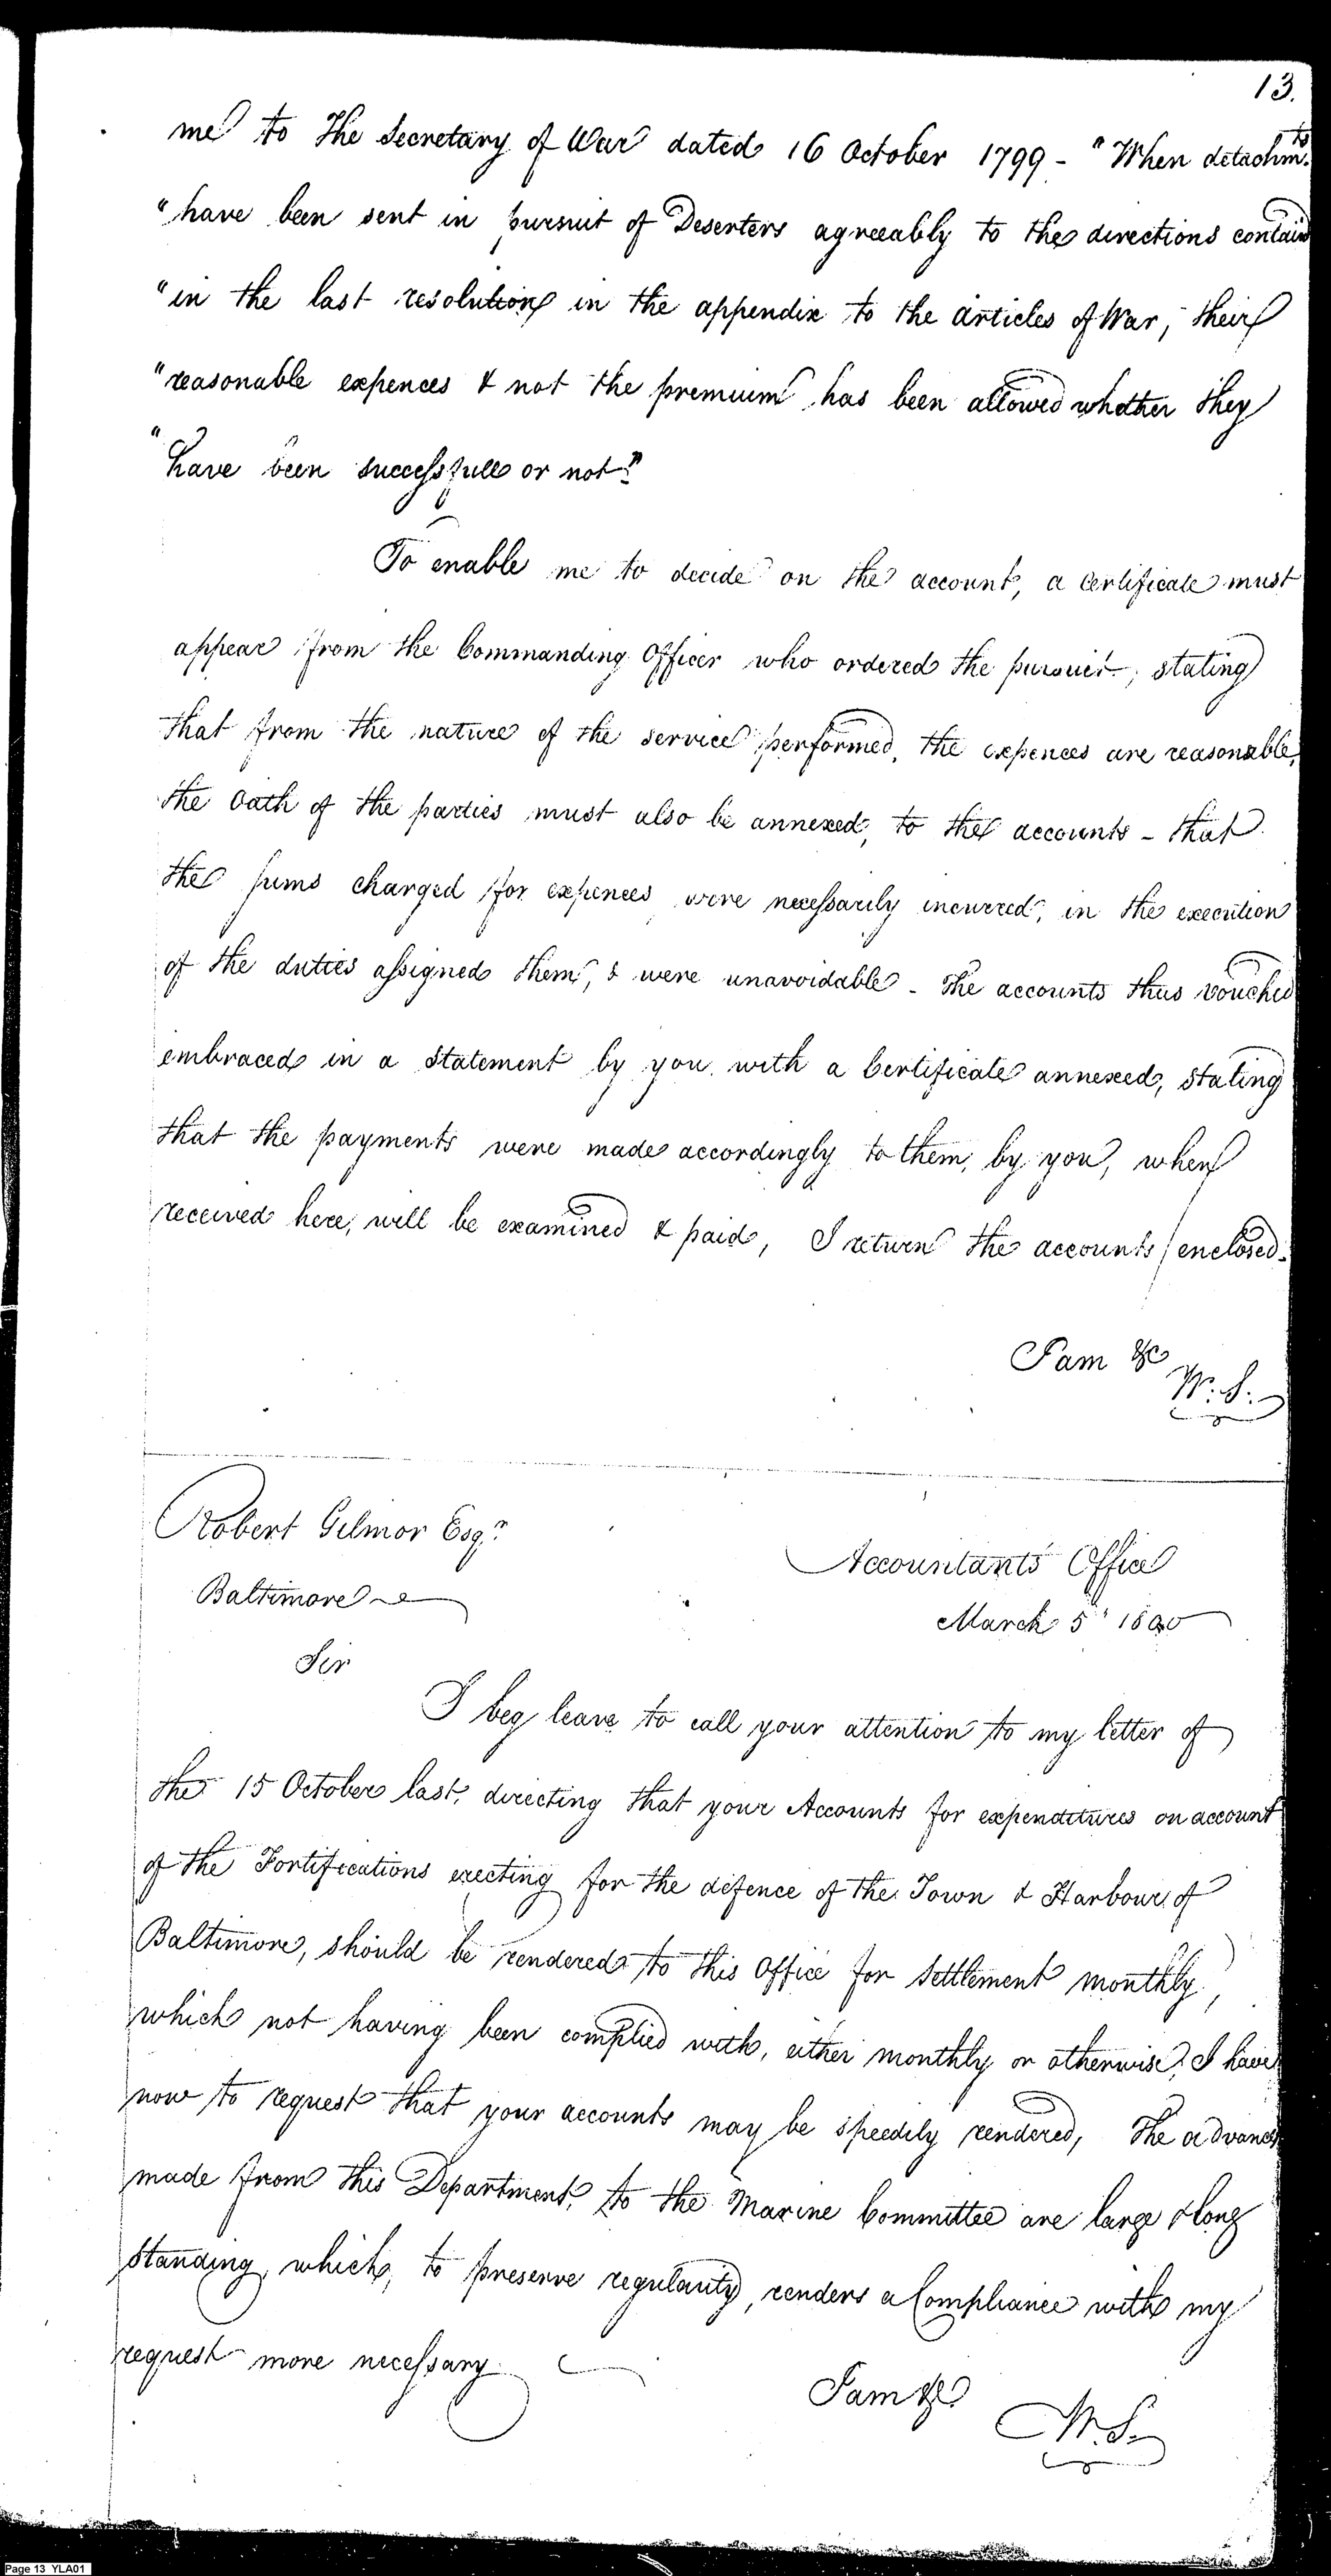 13.
me to The Secretary of War dated 16 October 1799 - "When detachmts.
"have been sent in pursuit of Deserters agreeably to the directions contain'd
"in the last resolution in the appendix to the articles of War, their
"reasonable expences & not the premium has been allowed whether they
"have been successfull or not."
To enable me to decide on the account, a certificate must
appear from the Commanding Officer who ordered the pursuit, stating
that from the nature of the service performed, the expences are reasonable,
the Oath of the parties must also be annexed, to the accounts - that
the sums charged for expences were necessarily incurred, in the execution
of the duties assigned them, & were unavoidable - The accounts thus vouched
embraced in a Statement by you with a Certificate annexed, stating
that the payments were made accordingly to them, by you, when
received here, will be examined & paid, I return the accounts enclosed.
I am &c
W. S.
Robert Gilmor Esqr.
Accountants Office
Baltimore
March 5 1800
Sir
I beg leave to call your attention to my letter of
the 15 October last, directing that your Accounts for expenditures on account
of the Fortifications erecting for the defence of the Town & Harbour of
Baltimore, should be rendered to this Office for Settlement monthly,
which not having been complied with, either monthly or otherwise, I have
now to request that your accounts may be speedily rendered, The advances
made from this Department, to the Marine Committee are large & long
standing, which, to preserve regularity, renders a Compliance with my
request more necessary
I am &c
W. S.
Page 13 YLA01